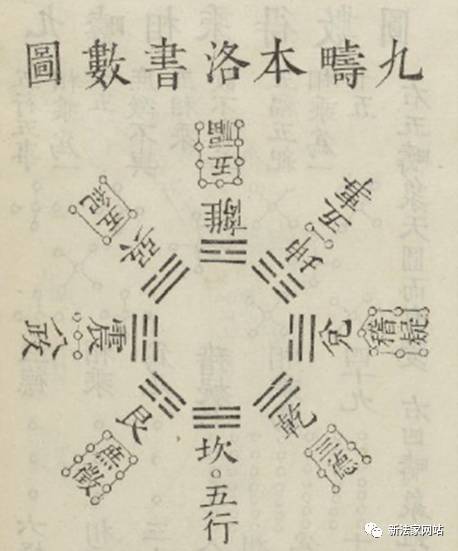 九疇本洛書數圖
五福
離
五紀
巽
五事
坤
八政
震
兌
稽疑
艮
庶徵
乾
三德
坎
五行
新法家网站